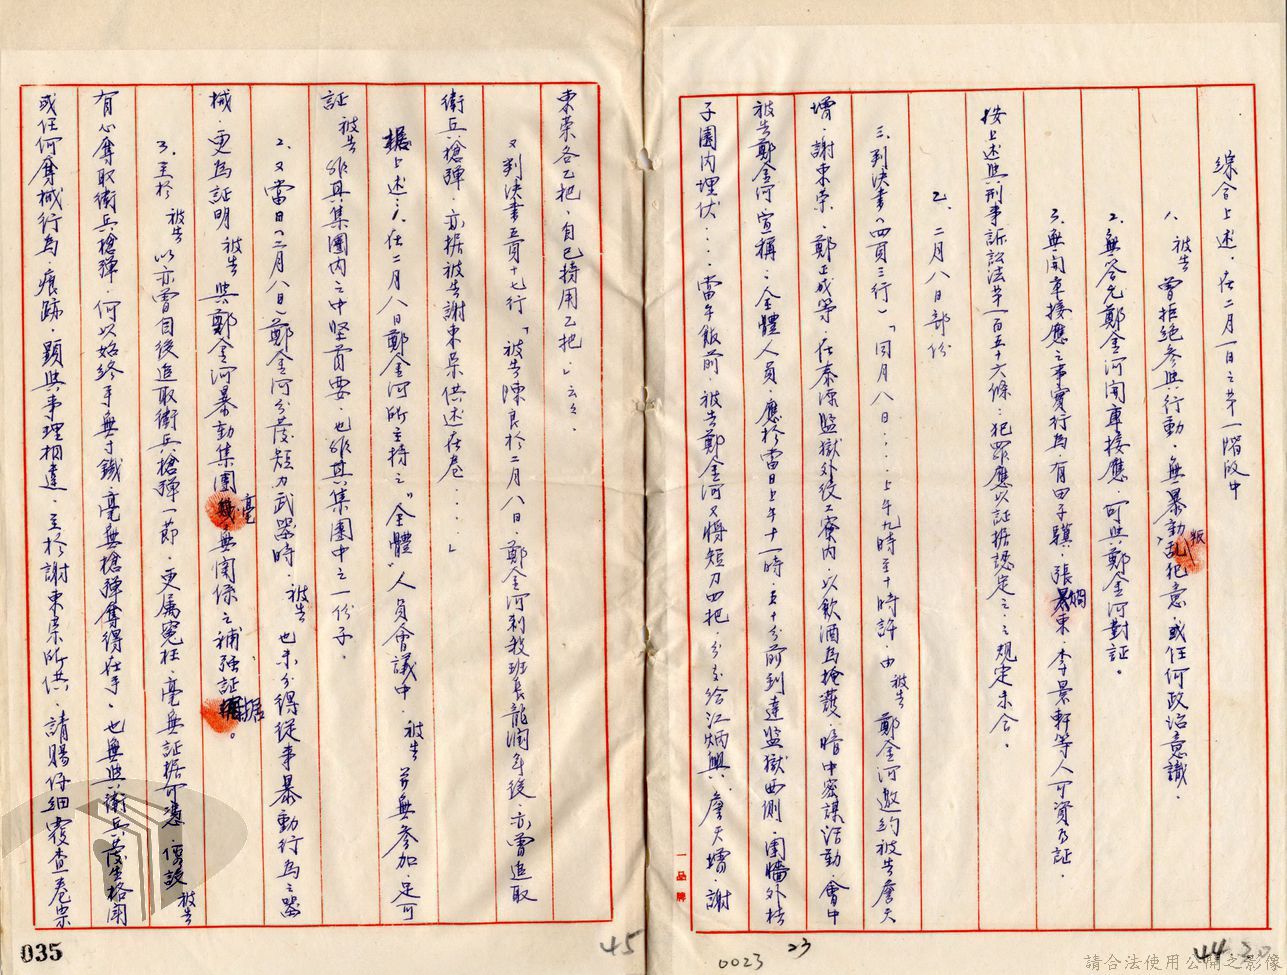 綜合上述，在二月一日之第一階段中
1. 被告曾拒絕參與行動，無暴動叛亂犯意，或任何政治意識，
2. 無答允鄭金河開車接應，可與鄭金河對証。
3. 無開車接應之事實行為，有田子驥，張嫺東，李景軒等人可資為証，
按上述與刑事訴訟法第一百五十六條：犯罪應以証据認定之之規定未合。
乙、二月八日部份
三、判決書（四頁三行）「同月八日……上午九時至十時許，由被告鄭金河邀約被告詹天
增，謝東荣，鄭正成等，在泰源監獄外役工寮內，以飲酒為掩護，暗中密謀活動，會中
被告鄭金河宣稱：全體人員，應於當日上午十一時，五十分前到達監獄西側，圍牆外桔
子園內埋伏……當午飯前，被告鄭金河又將短刀四把，分分給江炳興，詹天增，謝
東荣各乙把，自己持用乙把」云云，
又判決書五頁十七行「被告陳良於二月八日，鄭金河刺殺班長龍潤年後，亦曾追取
衛兵槍彈，亦据被告謝東荣供述在卷……」
据上述：1. 在二月八日鄭金河所主持之"全體"人員會議中，被告並無參加，足可
証被告非其集團內之中坚首要，也非其集團中之一份子，
2. 又當日（二月八日）鄭金河分發短刀武器時，被告也未分得從事暴動行為之器
械，更為証明被告與鄭金河暴動集團毫無関係之補強証据。
3. 至於被告以亦曾目後追取衛兵槍彈一節，更属冤枉，毫無証据可憑，價設被告
有心奪取衛兵槍彈，何以始終手無寸鐵，毫無槍彈奪得在手，也無與衛兵發生格鬧
或任何奪械行為痕跡，顯與事理相違，至於謝東荣所供，請賜仔細覆查卷宗
一品牌
035
45
0023
23
44
請合法使用公開之影像